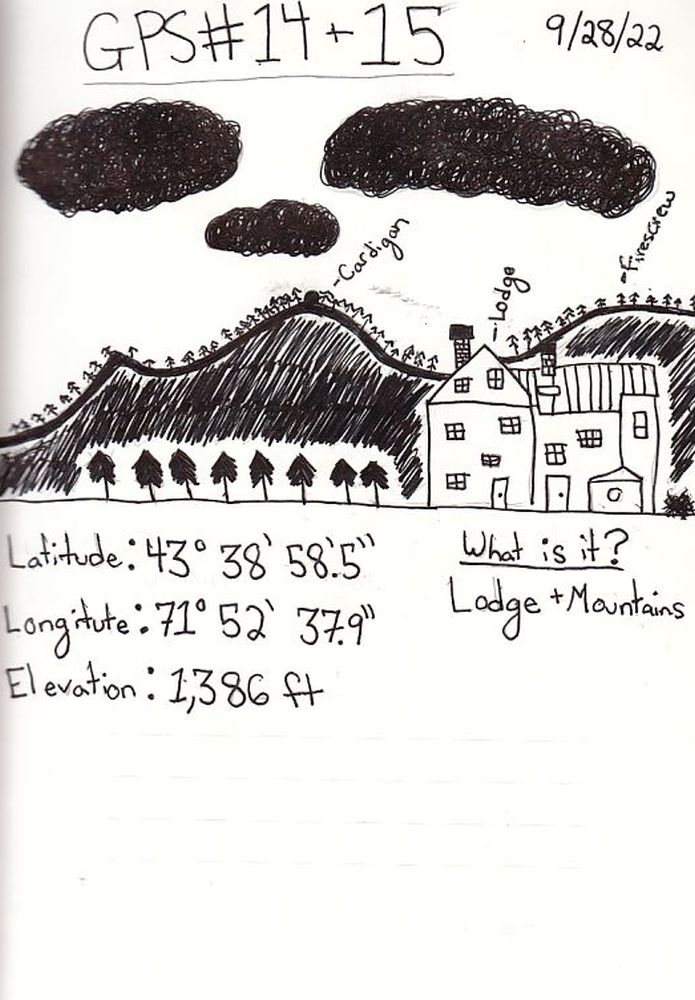 GPS#14+15
9/28/22
-Cardigan
-Lodge
-Firescrew
Latitude: 43° 38' 58.5"
What is it?
Longitute: 71° 52' 37.9"
Lodge + Mountains
Elevation: 1,386 ft